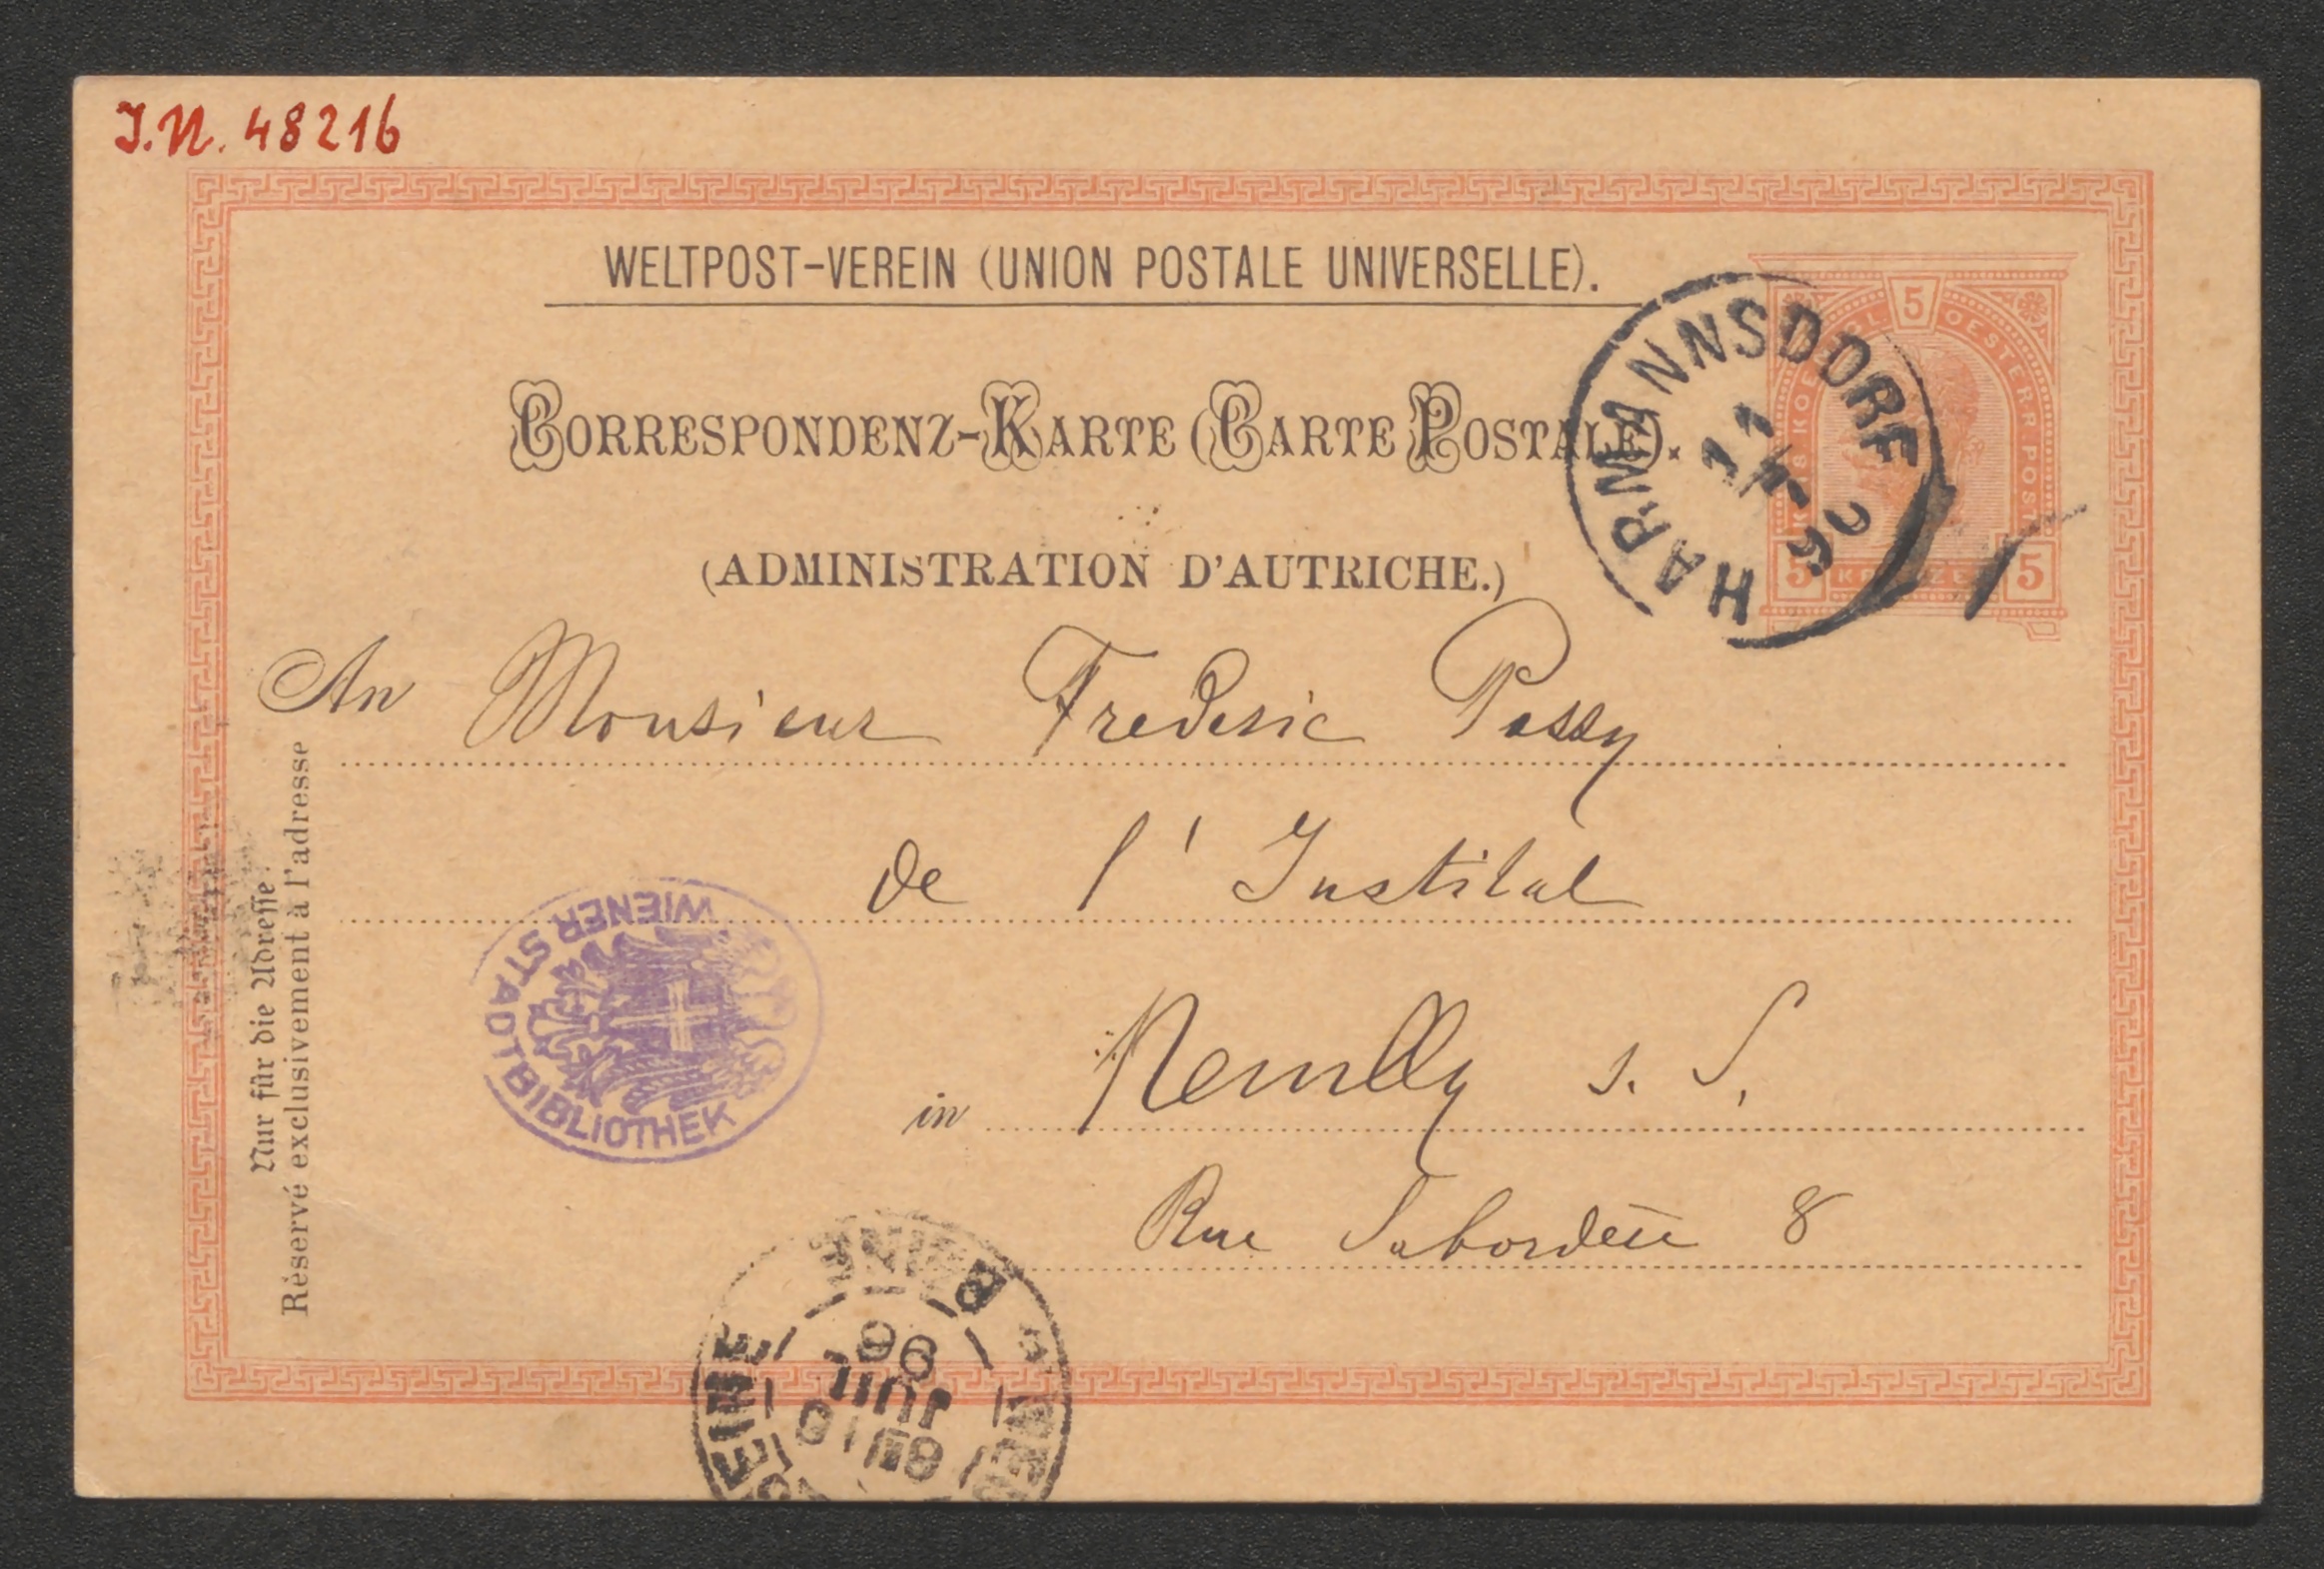 J.N. 48216
WELTPOST-VEREIN (UNION POSTALE UNIVERSELLE).
CORRESPONDENZ-KARTE (CARTE POSTALE).
(ADMINISTRATION D'AUTRICHE.)
HARMANNSDORF
5
5 5
An Monsieur Frederic Passy
de l'Institut
in Neuilly s. S.
Rue Labordère 8
Nur für die Adresse.
Réservé exclusivement à l'adresse
WIENER STADTBIBLIOTHEK
SEINE
JUIL
96